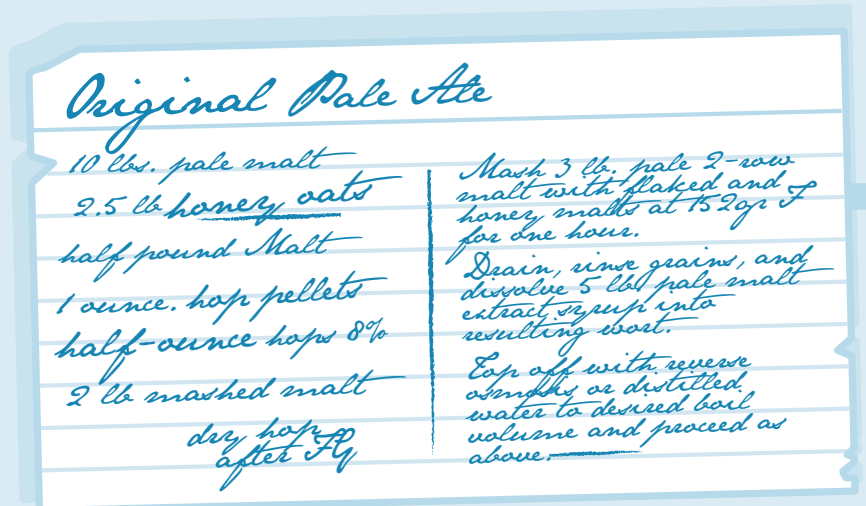 Original Pale Ale
10 lbs. pale malt
2.5 lb honey oats
half pound Malt
1 ounce. hop pellets
half-ounce hops 8%
2 lb mashed malt
dry hop
after FG
Mash 3 lb. pale 2-row
malt with flaked and
honey malts at 152gr F
for one hour.
Drain, rinse grains, and
dissolve 5 lb. pale malt
extract syrup into
resulting wort.
Top off with reverse
osmosis or distilled
water to desired boil
volume and proceed as
above.